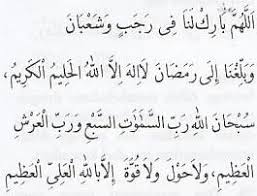 اَللّٰهُمَّ بَارِكْ لَنَا فِى رَجَبٍ وَشَعْبَانَ
وَبَلِّغْنَا اِلَى رَمَضَانَ لَااِلهَ اِلَّا اللهُ الْحَلِيْمُ الْكَرِيْمُ،
سُبْحَانَ اللهِ رَبِّ السَّمٰوٰتِ السَّبْعِ وَرَبِّ الْعَرْشِ
الْعَظِيْمِ، وَلَاحَوْلَ وَلَا قُوَّةَ اِلَّا بِاللهِ الْعَلِىِّ الْعَظِيْمِ